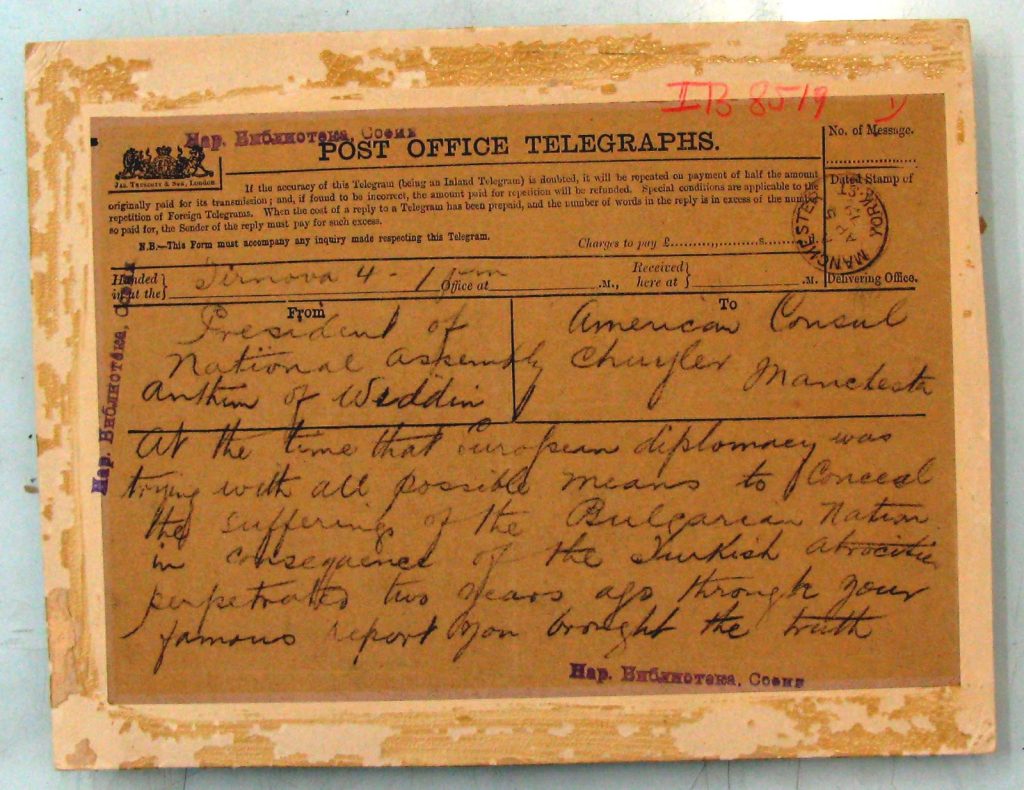 II B 8519
Нар. Библиотека, София
POST OFFICE TELEGRAPHS.
No. of Message.
JAS. TRUSCOTT & SON, LONDON
If the accuracy of this Telegram (being an Inland Telegram) is doubted, it will be repeated on payment of half the amount
originally paid for its transmission; and, if found to be incorrect, the amount paid for repetition will be refunded. Special conditions are applicable to the
repetition of Foreign Telegrams. When the cost of a reply to a Telegram has been prepaid, and the number of words in the reply is in excess of the number
so paid for, the Sender of the reply must pay for such excess.
N.B.—This Form must accompany any inquiry made respecting this Telegram.
Charges to pay £ s.
Dated Stamp of
MANCHESTER YORK ST
AP 5
Delivering Office.
Handed in at the } Tirnova 4 - 1 pm Office at .M., Received here at } .M.
From
President of
National Assembly
Anthim of Widdin
To
American Consul
Chuyler Manchester
At the time that European diplomacy was
trying with all possible means to Conceal
the sufferings of the Bulgarian Nation
in consequence of the Turkish atrocities
perpetrated two years ago through your
famous report you brought the truth
Нар. Библиотека, София
Нар. Библиотека, София